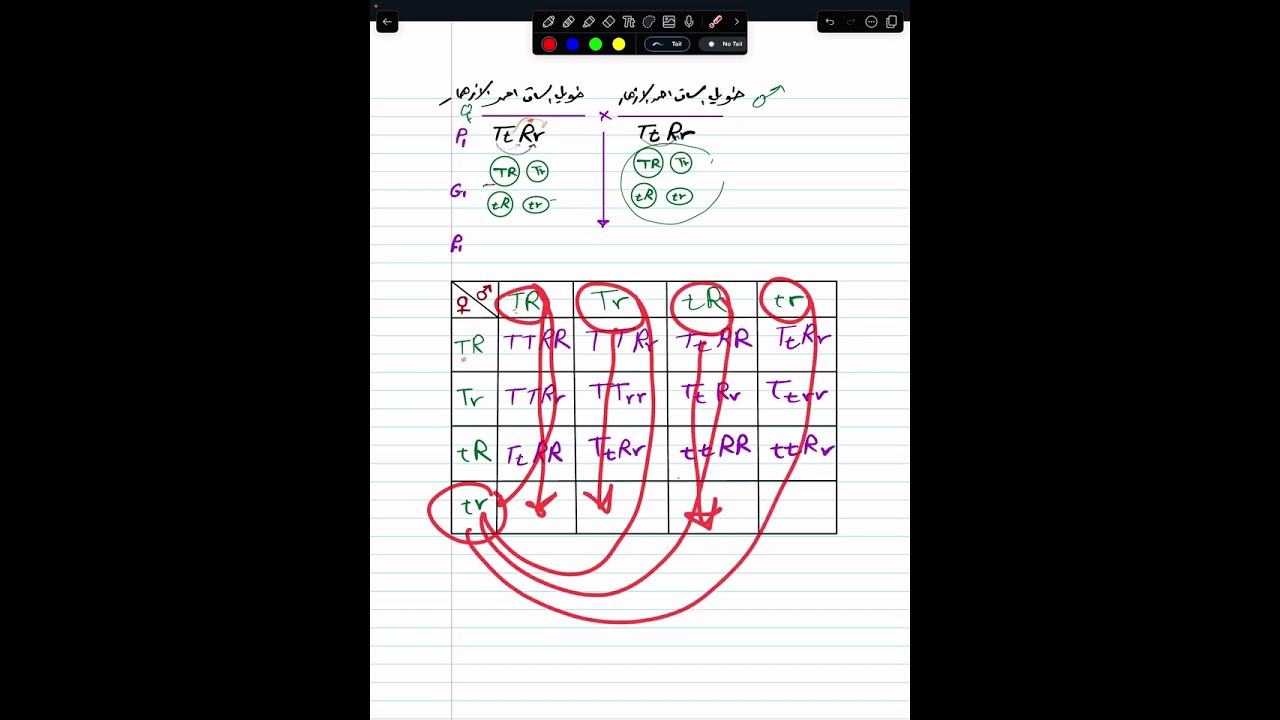 Tt Tail No Tail
طويل الساق احمر الازهار طويل الساق احمر الازهار ♂
♀ ×
P₁ TtRr TtRr
TR Tr TR Tr
G₁
tR tr tR tr
F₁
♀ ♂ TR Tr tR tr
TR TTRR TTRr TtRR TtRr
Tr TTRr TTrr TtRr Ttrr
tR TtRR TtRr ttRR ttRr
tr